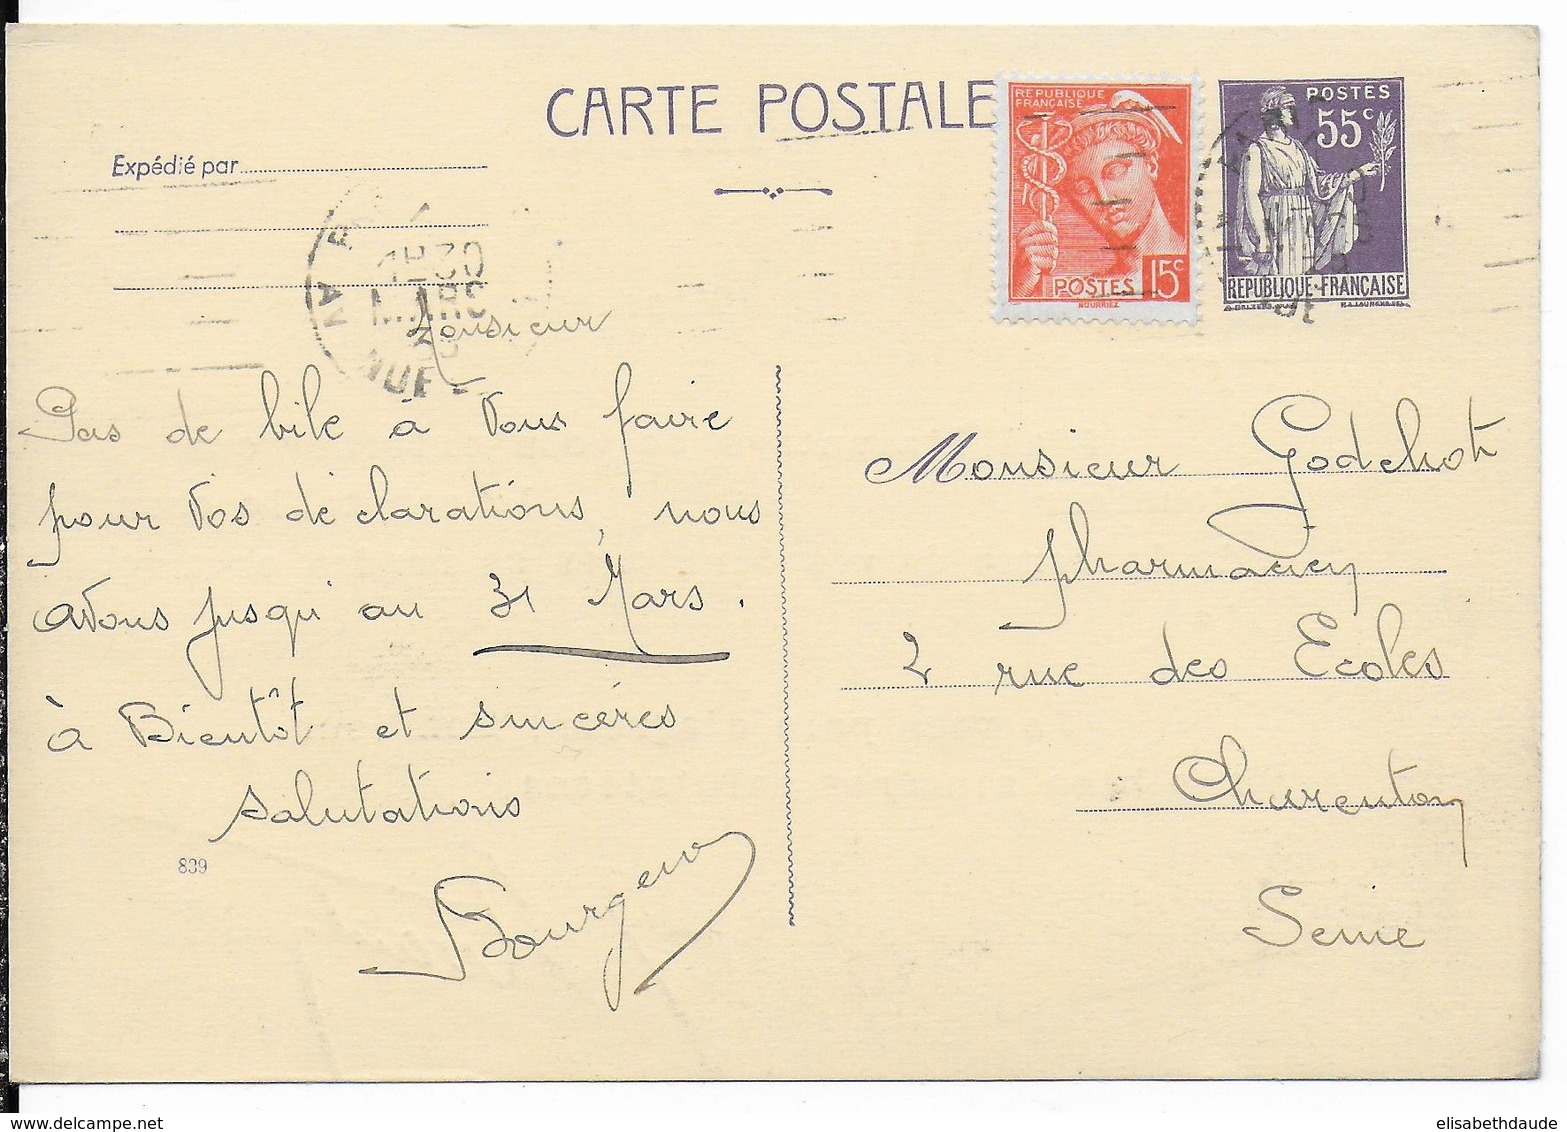 CARTE POSTALE
Expédié par
REPUBLIQUE
FRANÇAISE
POSTES 15c
NOURRIEZ
POSTES
55c
REPUBLIQUE FRANÇAISE
MARS
Monsieur
Pas de bile à vous faire
pour vos déclarations, nous
avons jusqu'au 31 Mars.
à Bientôt et sincéres
salutations
839
Monsieur Godchot
pharmacien
2 rue des Ecoles
Charenton
Seine
elisabethdaude